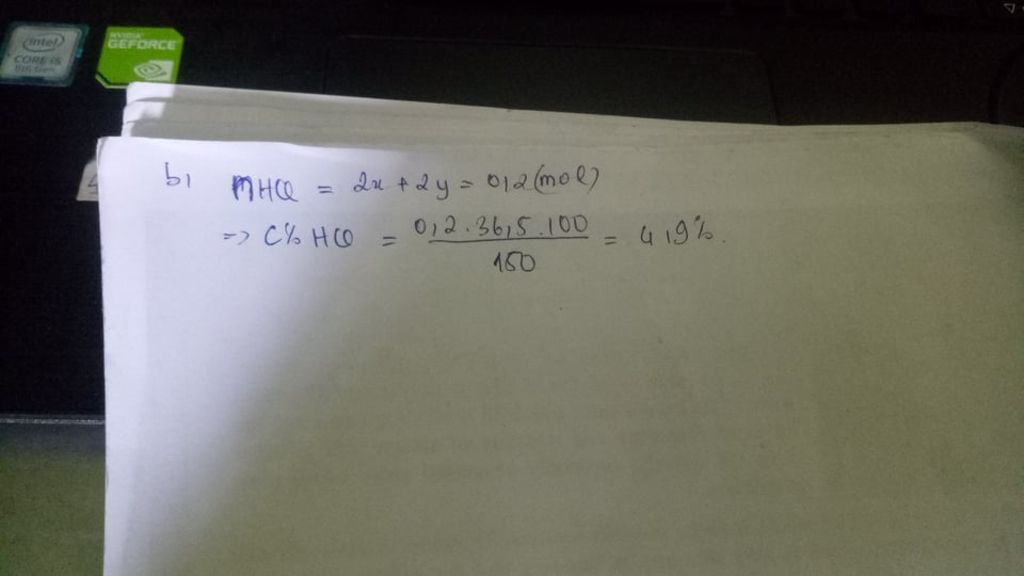 intel
CORE i5
8th Gen
NVIDIA
GEFORCE
b, nHCl = 2x + 2y = 0,2 (mol)
=> C% HCl = 0,2.36,5.100 / 150 = 4,9%.